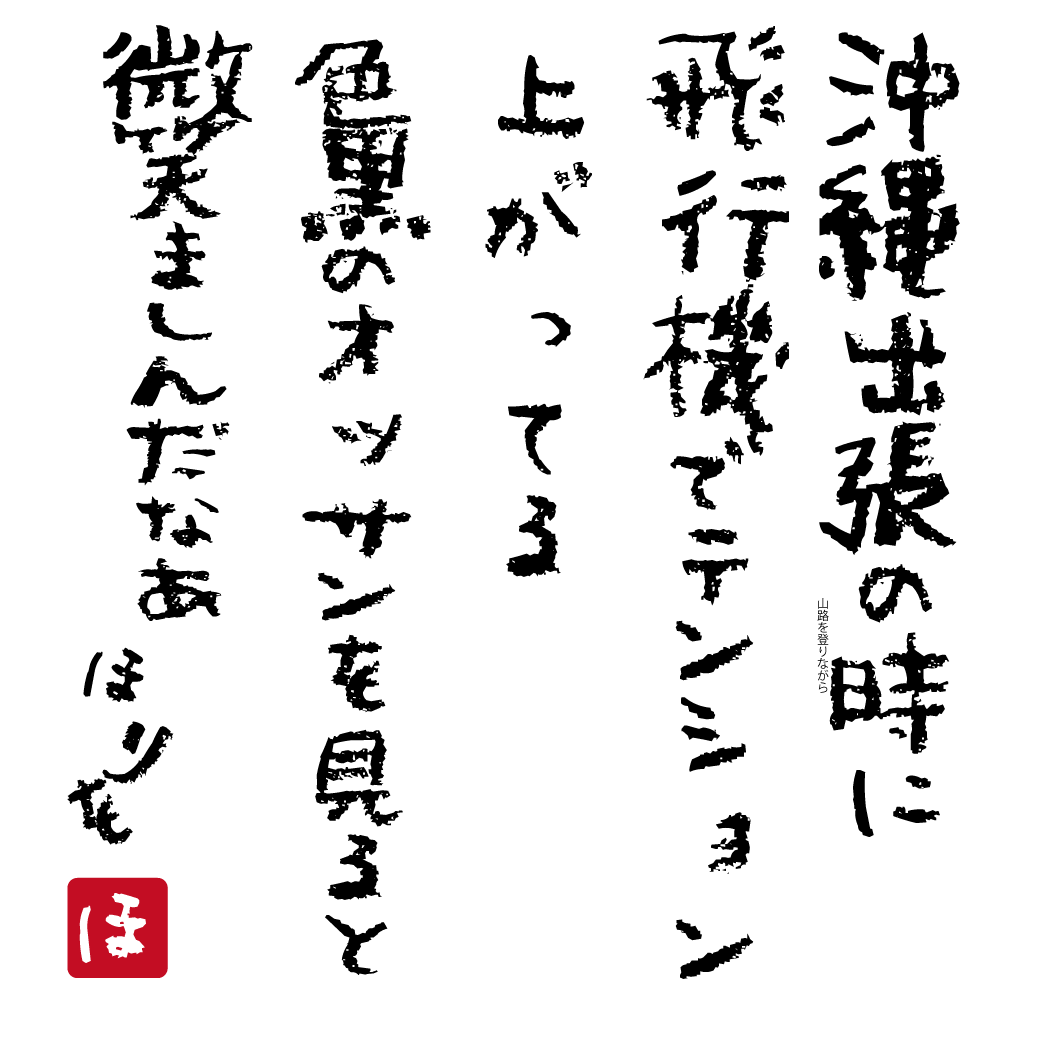 沖縄出張の時に
山路を登りながら
飛行機でテンション
上がってる
色黒のオッサンを見ると
微笑ましんだなあ
ほりを
ほ